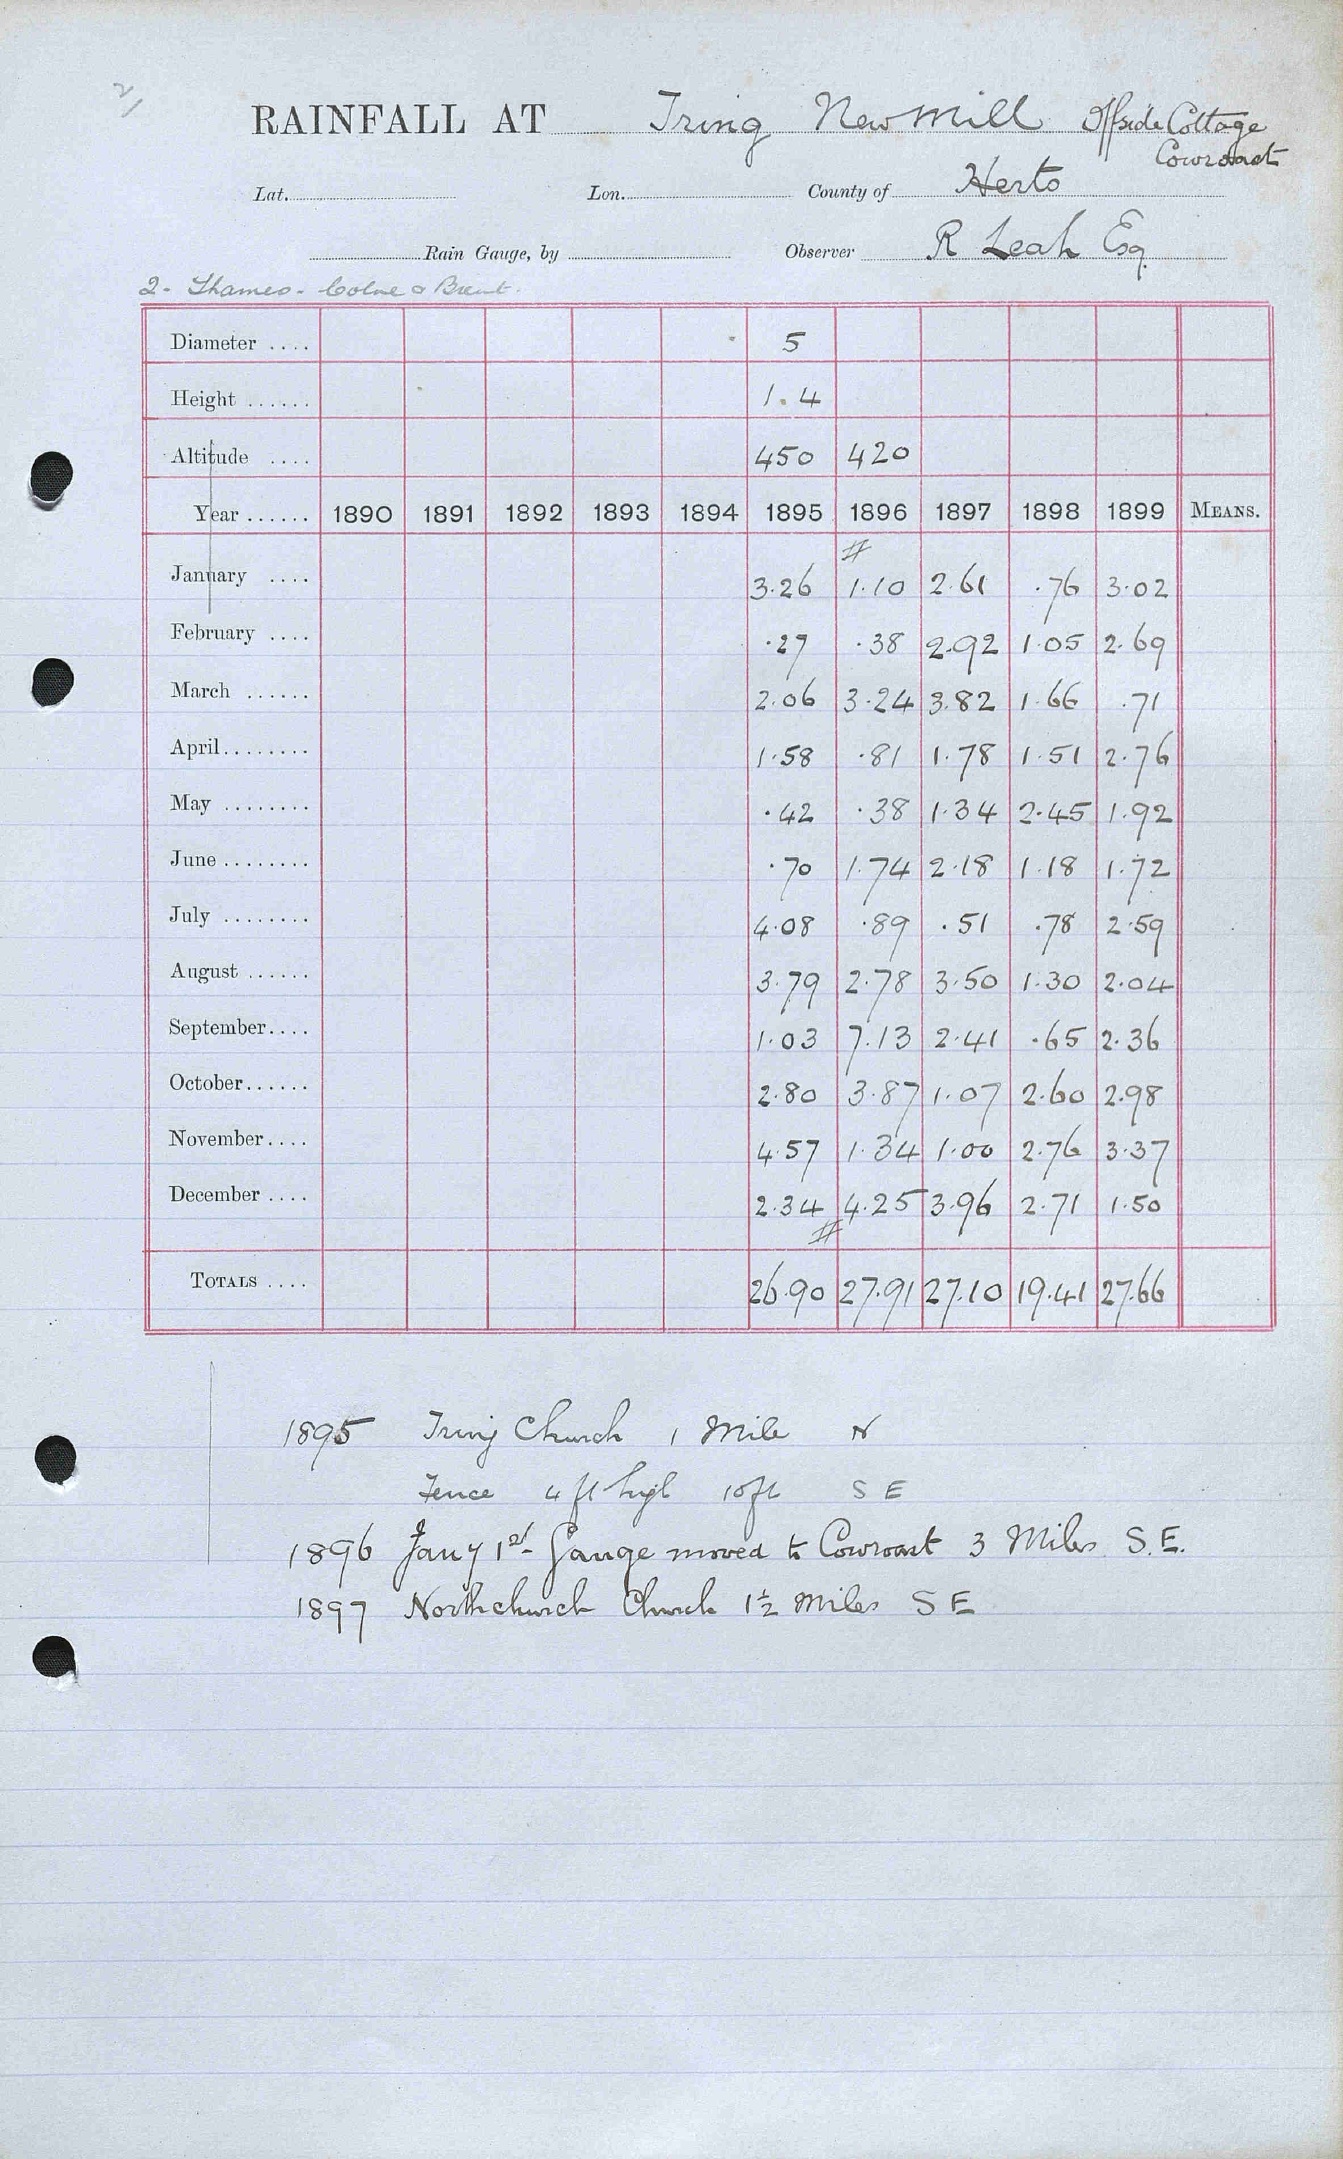 2/
RAINFALL AT Tring New Mill Offside Cottage
Cowroast
Lat. Lon. County of Herts
Rain Gauge, by Observer R Leah Esq.
2 - Thames - Colne & Brent.
Diameter .... 5
Height ...... 1.4
Altitude .... 450 420
Year ...... 1890 1891 1892 1893 1894 1895 1896 1897 1898 1899 MEANS.
#
January .... 3.26 1.10 2.61 .76 3.02
February .... .27 .38 2.92 1.05 2.69
March ...... 2.06 3.24 3.82 1.66 .71
April........ 1.58 .81 1.78 1.51 2.76
May ........ .42 .38 1.34 2.45 1.92
June ........ .70 1.74 2.18 1.18 1.72
July ........ 4.08 .89 .51 .78 2.59
August ...... 3.79 2.78 3.50 1.30 2.04
September.... 1.03 7.13 2.41 .65 2.36
October...... 2.80 3.87 1.07 2.60 2.98
November.... 4.57 1.34 1.00 2.76 3.37
December .... 2.34 4.25 3.96 2.71 1.50
#
TOTALS .... 26.90 27.91 27.10 19.41 27.66
1895 Tring Church 1 Mile N
Fence 4 ft high 10ft S E
1896 Jany 1st Gauge moved to Cowroast 3 Miles S.E.
1897 Northchurch Church 1½ Miles S E